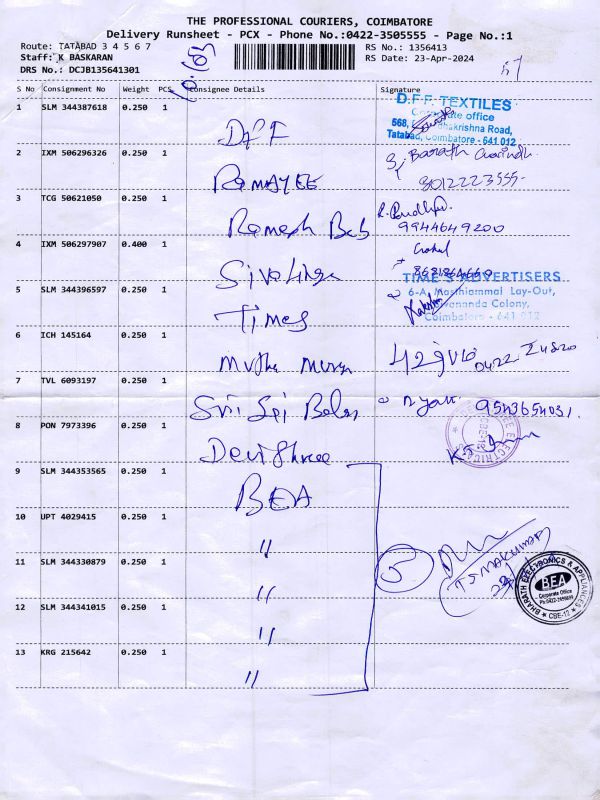 THE PROFESSIONAL COURIERS, COIMBATORE
Delivery Runsheet - PCX - Phone No.:0422-3505555 - Page No.:1
Route: TATABAD 3 4 5 6 7
RS No.: 1356413
Staff: K BASKARAN
RS Date: 23-Apr-2024
DRS No.: DCJB135641301
S No Consignment No Weight PCS Consignee Details Signature
1 SLM 344387618 0.250 1 DFF
D.F.F. TEXTILES
Corporate office
568, Radhakrishna Road,
Tatabad, Coimbatore - 641 012
2 IXM 506296326 0.250 1 RAMAYEE Barath
3 TCG 50621050 0.250 1 Ramesh Bab 9944649200
4 IXM 506297907 0.400 1 Sivalinga
5 SLM 344396597 0.250 1 Times
TIME'S ADVERTISERS
6-A, Masthiammal Lay-Out,
Sivananda Colony,
Coimbatore - 641 012
6 ICH 145164 0.250 1 Muthu
7 TVL 6093197 0.250 1 Sri Sai 9543654031.
8 PON 7973396 0.250 1 Devi Shree
9 SLM 344353565 0.250 1 BEA
10 UPT 4029415 0.250 1 "
11 SLM 344330879 0.250 1 " 5
12 SLM 344341015 0.250 1 "
13 KRG 215642 0.250 1 "
BHARATH ELECTRONICS & APPLIANCES
BEA
Corporate Office
CBE-12